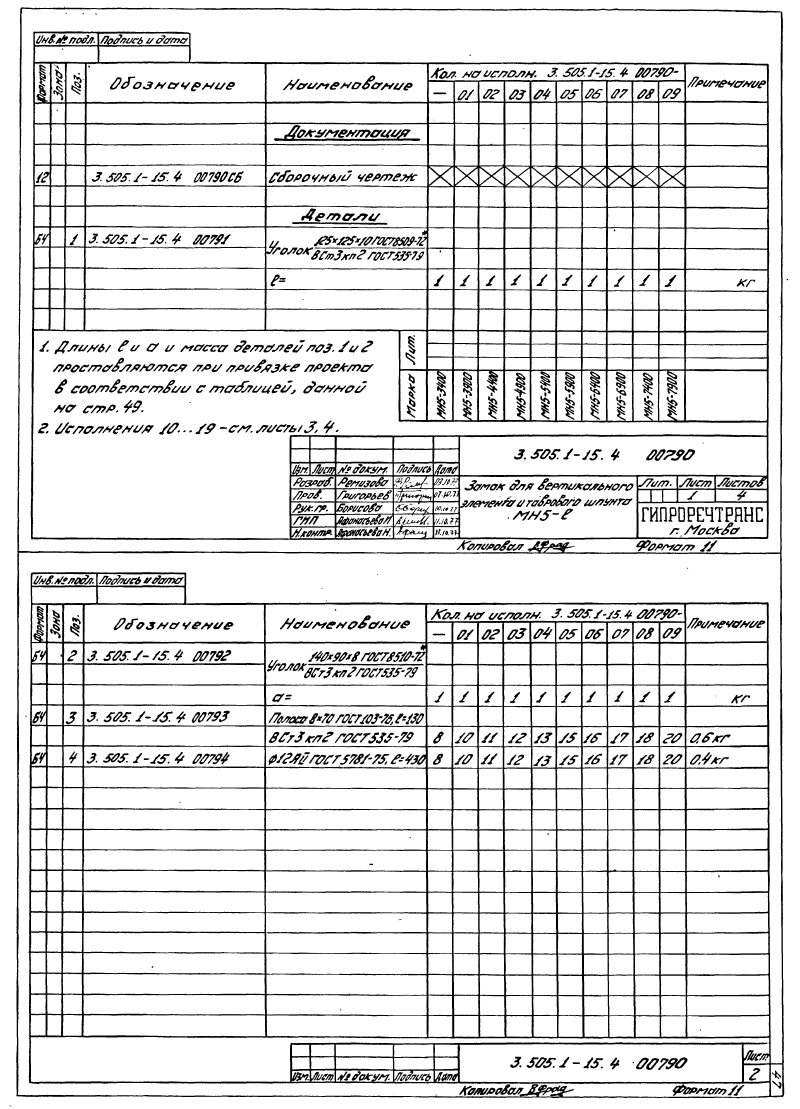 Инв.№ подл. Подпись и дата
Формат Зона Поз. Обозначение Наименование Кол. на исполн. 3.505.1-15.4 00790- Примечание
— 01 02 03 04 05 06 07 08 09
Документация
12 3.505.1-15.4 00790СБ Сборочный чертеж
Детали
БЧ 1 3.505.1-15.4 00791 Уголок 125×125×10 ГОСТ 8509-72*
ВСт3кп2 ГОСТ 535-79
ℓ= 1 1 1 1 1 1 1 1 1 1 кг
1. Длины ℓ и а и масса деталей поз. 1 и 2
проставляются при привязке проекта
в соответствии с таблицей, данной
на стр. 49.
2. Исполнения 10...19 – см. листы 3, 4.
Лит.
Марка МН5-3400 МН5-3900 МН5-4400 МН5-4900 МН5-5400 МН5-5900 МН5-6400 МН5-6900 МН5-7400 МН5-7900
3.505.1-15.4 00790
Изм. Лист № докум. Подпись Дата
Разраб. Ремизова
Пров. Григорьев
Рук.гр. Борисова
ГИП Афанасьева Н.
Н.контр. Афанасьева Н.
Замок для вертикального
элемента и таврового шпунта
МН5-ℓ
Лит. Лист Листов
1 4
ГИПРОРЕЧТРАНС
г. Москва
Копировал Формат 11
Инв.№ подл. Подпись и дата
Формат Зона Поз. Обозначение Наименование Кол. на исполн. 3.505.1-15.4 00790- Примечание
— 01 02 03 04 05 06 07 08 09
БЧ 2 3.505.1-15.4 00792 Уголок 140×90×8 ГОСТ 8510-72*
ВСт3кп2 ГОСТ 535-79
а= 1 1 1 1 1 1 1 1 1 1 кг
БЧ 3 3.505.1-15.4 00793 Полоса 8×70 ГОСТ 103-76, ℓ=130
ВСт3кп2 ГОСТ 535-79 8 10 11 12 13 15 16 17 18 20 0,6 кг
БЧ 4 3.505.1-15.4 00794 ф12АII ГОСТ 5781-75, ℓ=430 8 10 11 12 13 15 16 17 18 20 0.4 кг
3.505.1-15.4 00790
Изм. Лист № докум. Подпись Дата
Лист
2
47
Копировал Формат 11